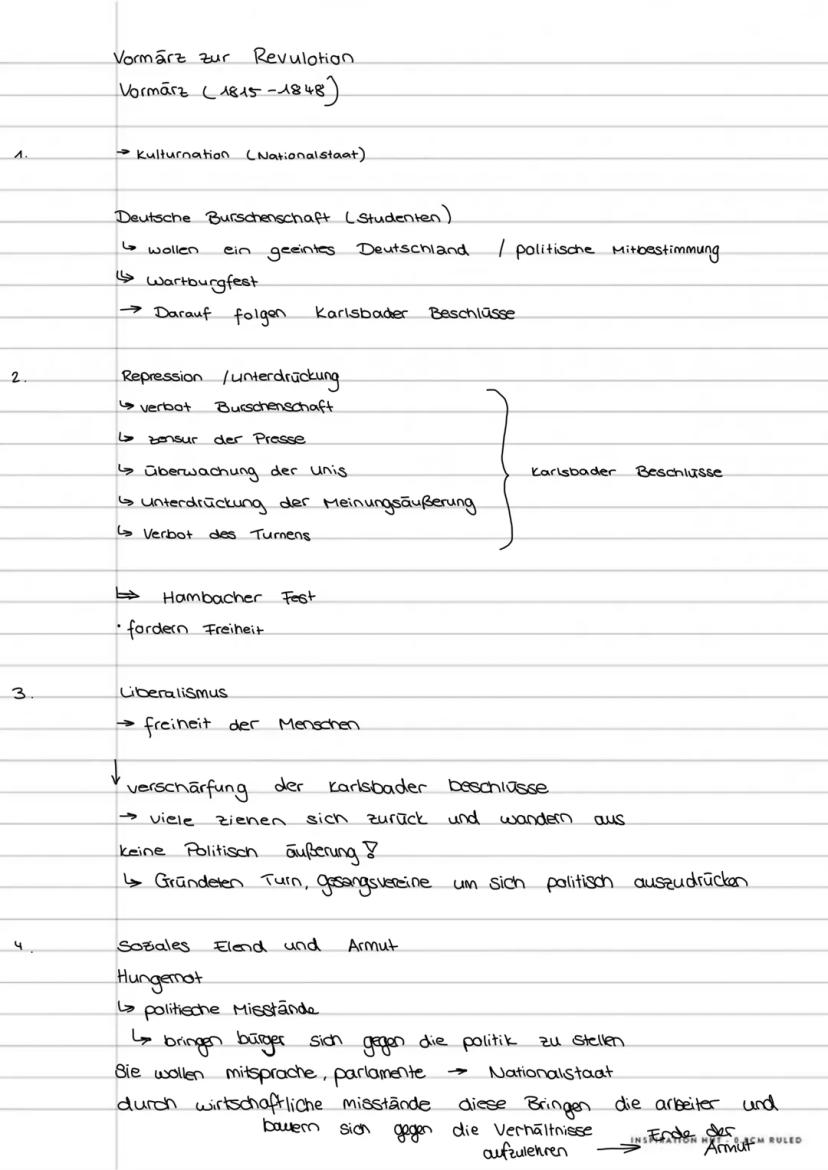 Vormärz zur Revulotion
Vormärz (1815-1848)
1. → Kulturnation (Nationalstaat)
Deutsche Burschenschaft (Studenten)
↳ wollen ein geeintes Deutschland / politische Mitbestimmung
↳ Wartburgfest
→ Darauf folgen Karlsbader Beschlüsse
2. Repression / unterdrückung
↳ verbot Burschenschaft
↳ zensur der Presse
↳ überwachung der Unis
Karlsbader Beschlüsse
↳ unterdrückung der Meinungsäußerung
↳ Verbot des Turnens
↳ Hambacher Fest
· fordern Freiheit
3. Liberalismus
→ freiheit der Menschen
↓ verschärfung der Karlsbader beschlüsse
→ viele ziehen sich zurück und wandern aus
keine Politisch äußerung!
↳ Gründeten Turn, Gesangsvereine um sich politisch auszudrücken
4. Soziales Elend und Armut
Hungernot
↳ politische Misstände
↳ bringen bürger sich gegen die politik zu stellen
Sie wollen mitsprache, parlamente → Nationalstaat
durch wirtschaftliche misstände diese Bringen die arbeiter und
bauern sich gegen die Verhältnisse
aufzulehren → Ende der
Armut
CM RULED